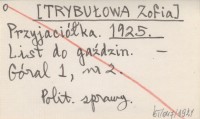 [TRYBUŁOWA Zofia]
Przyjaciółka. 1925.
List do gaździn. —
Góral 1, nr 2.
Polit. sprawy.